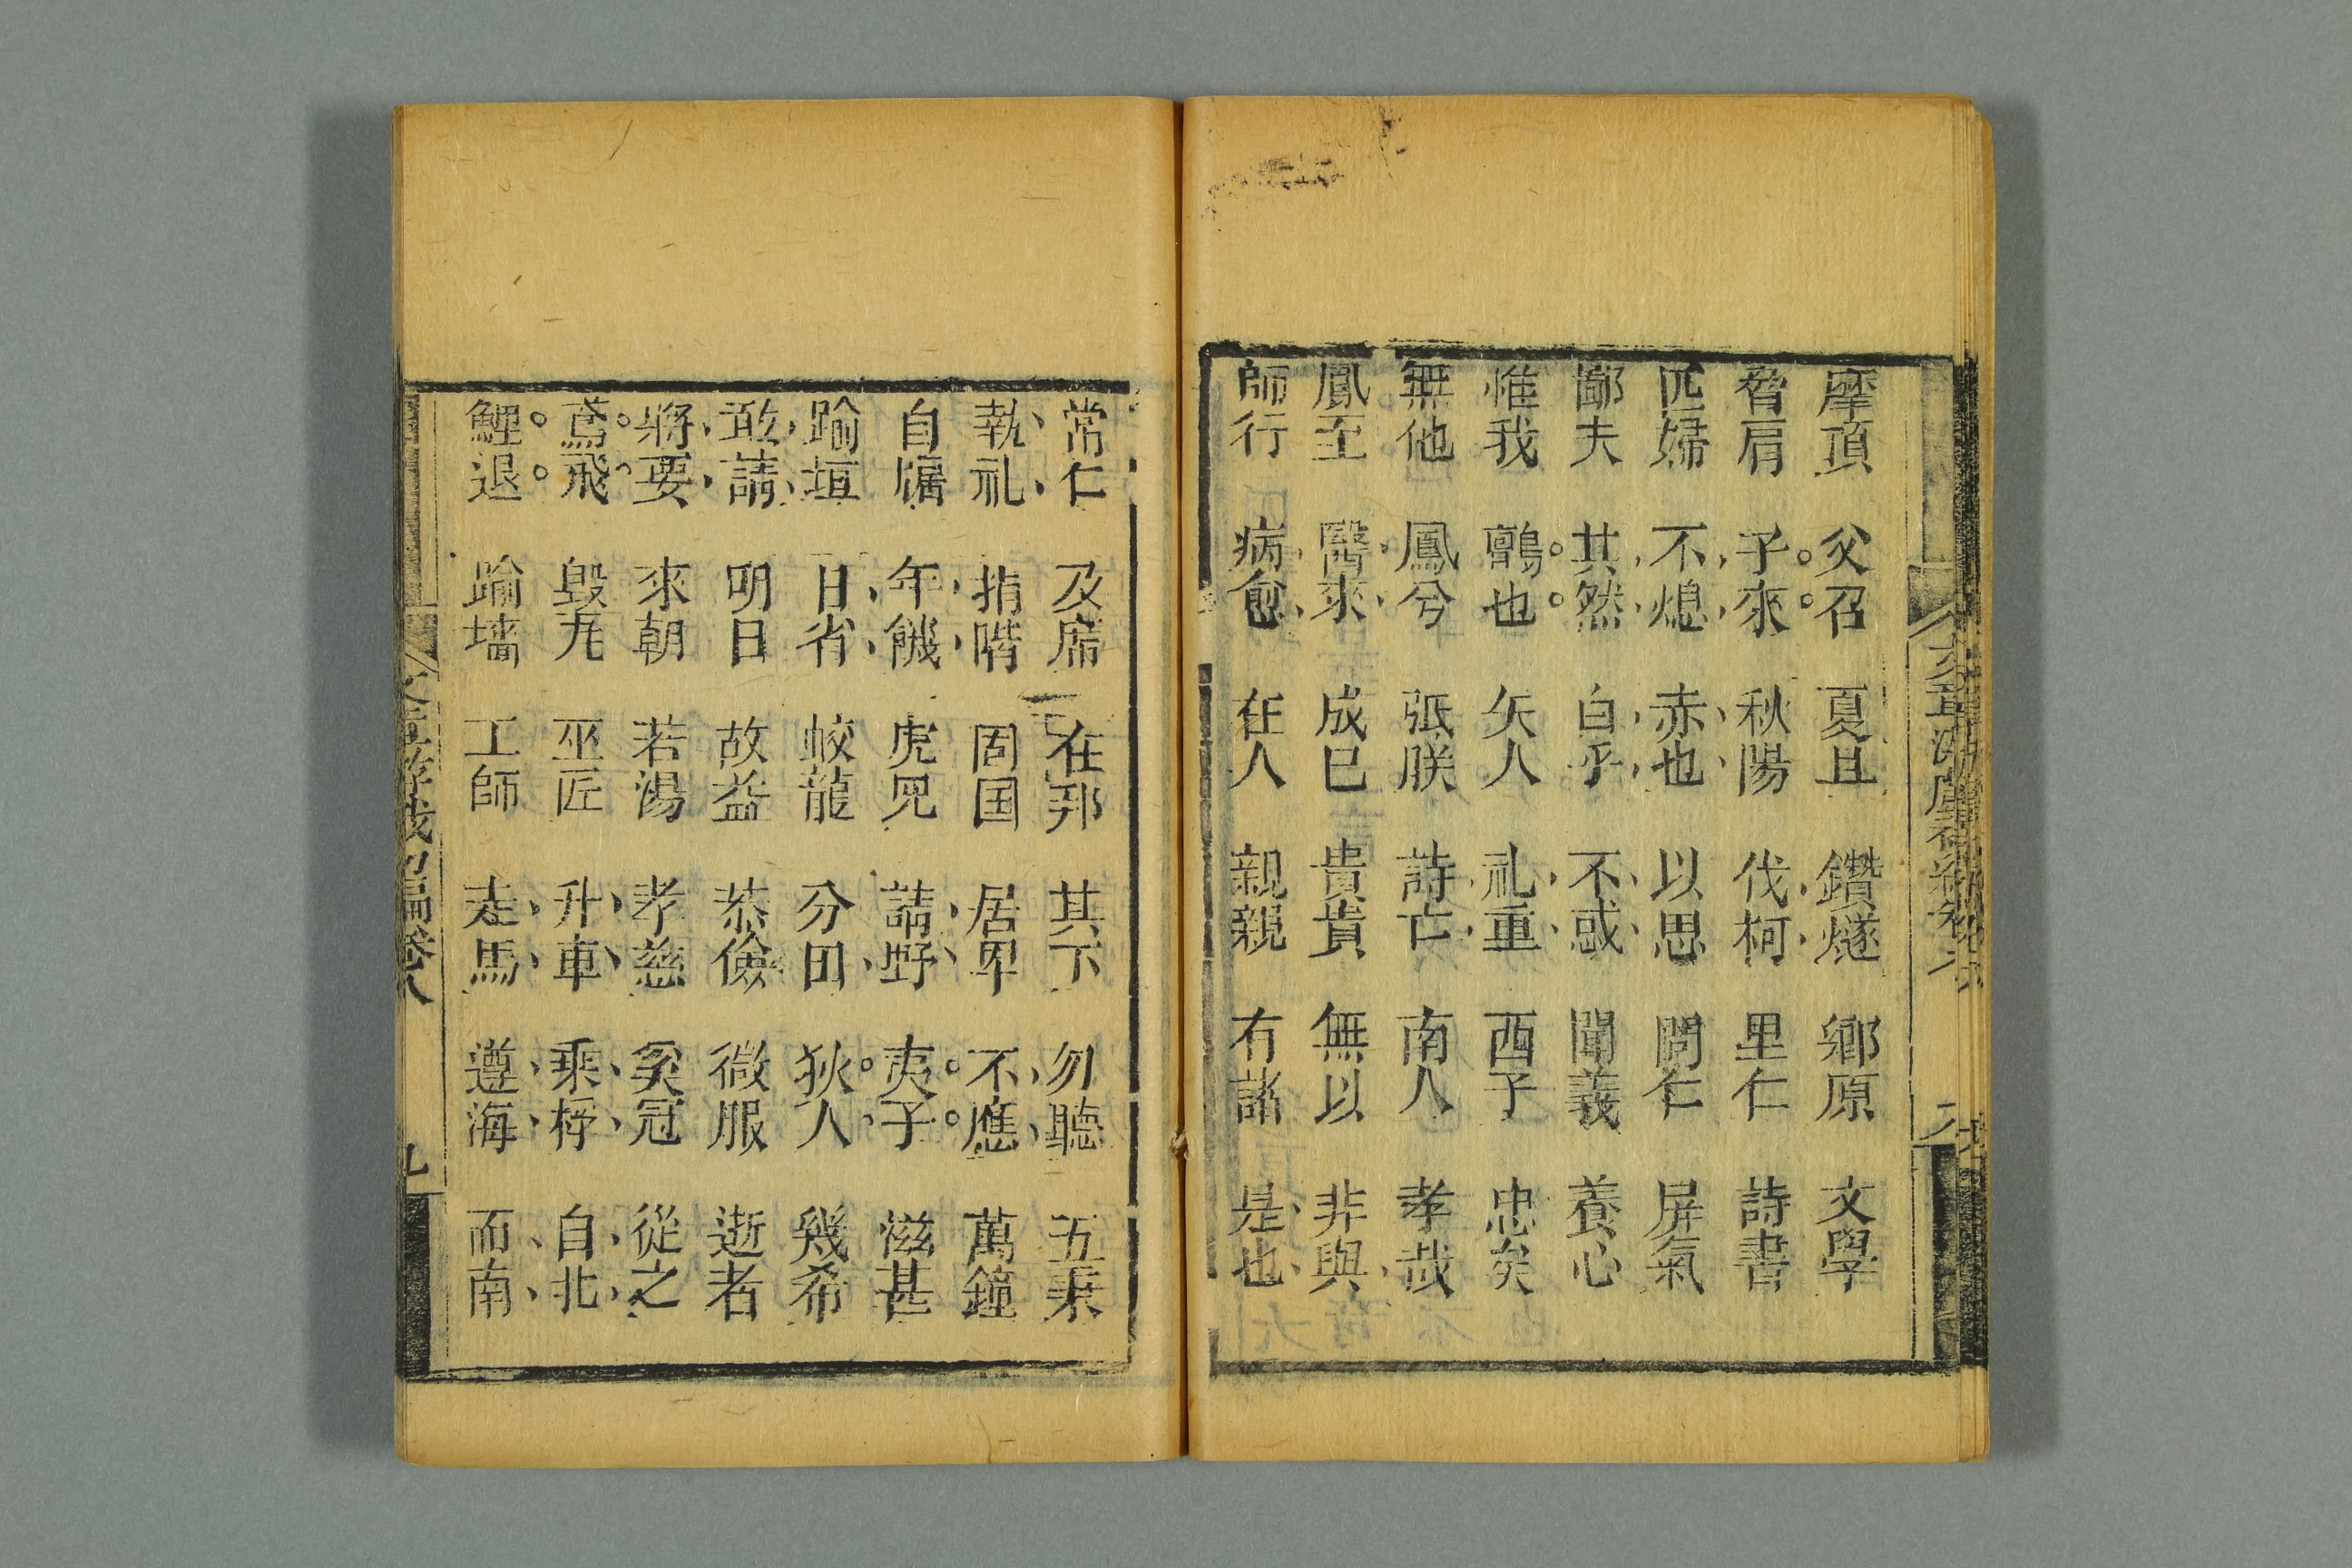 摩頂　父召　夏且　鑽燧　鄉原　文學
脅肩　子來　秋陽　伐柯　里仁　詩書
匹婦　不熄　赤也　以思　問仁　屏氣
鄙夫　其然　白乎　不惑　聞義　養心
惟我　鶉也　矢人　礼重　西子　忠矣
無他　鳳兮　張朕　詩亡　南人　孝哉
鳳至　醫來　成已　貴貴　無以　非與
師行　病愈　在人　親親　有諸　是也
常仁　及席　在邦　其下　勿聽　五秉
執礼　指階　固国　居卑　不應　萬鐘
自牖　年饑　虎兕　請野　夷子　滋甚
踰垣　日省　蛟龍　分田　狄人　幾希
敢請　明日　故益　恭儉　微服　逝者
將要　來朝　若湯　孝慈　奚冠　從之
鳶飛　毀瓦　巫匠　升車　乘桴　自北
鯉退　踰墻　工師　走馬　遵海　而南